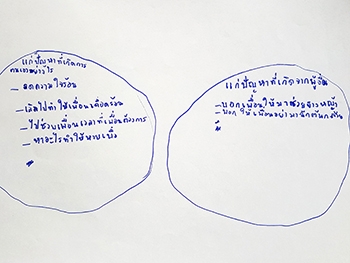 แก้ปัญหาที่เกิดการ
ตนเองอย่างไร
- ลดความใจร้อน
- เดินไปทำให้เพื่อนเดือดร้อน
- ไปช่วยเพื่อนเวลาที่เพื่อนต้องการ
- หาอะไรทำให้หายเบื่อ
แก้ปัญหาที่เกิดจากผู้อื่น
- บอกเพื่อนให้มาช่วย
- บอกให้เพื่อนอย่ามา